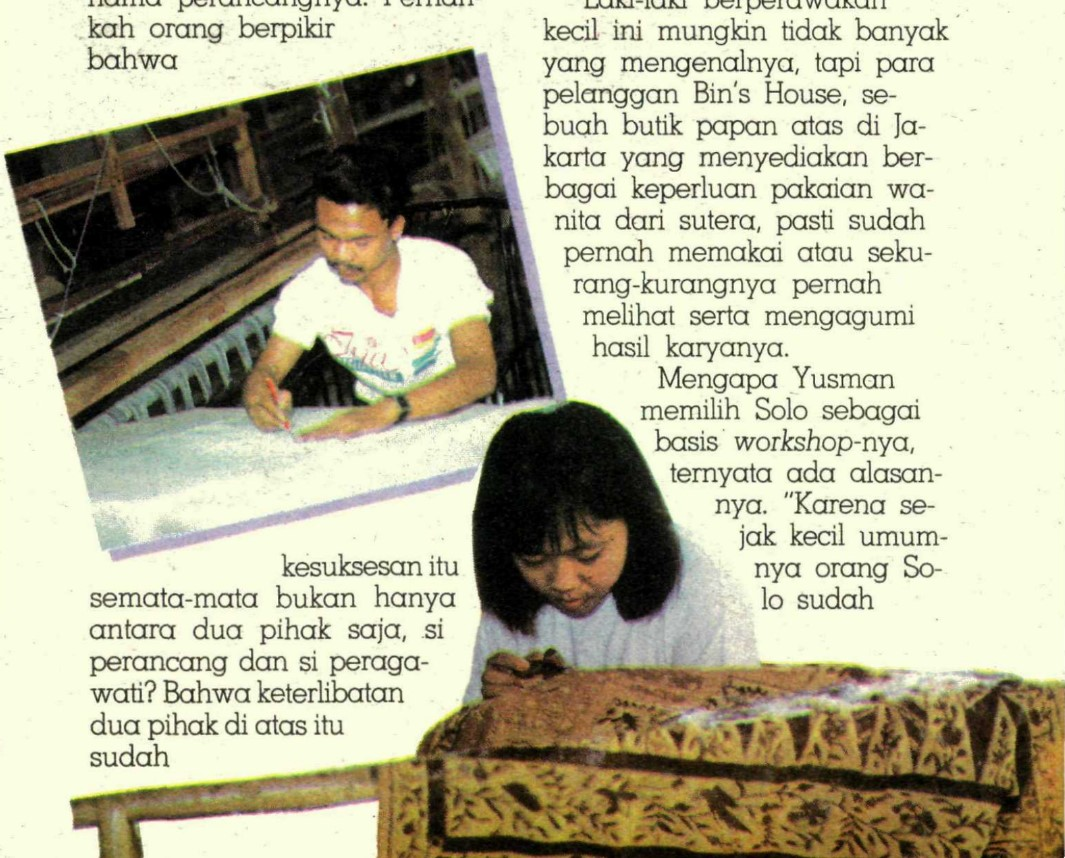 nama perancangnya. Pernah-
kah orang berpikir
bahwa
kesuksesan itu
semata-mata bukan hanya
antara dua pihak saja, si
perancang dan si peraga-
wati? Bahwa keterlibatan
dua pihak di atas itu
sudah
Laki-laki berperawakan
kecil ini mungkin tidak banyak
yang mengenalnya, tapi para
pelanggan Bin's House, se-
buah butik papan atas di Ja-
karta yang menyediakan ber-
bagai keperluan pakaian wa-
nita dari sutera, pasti sudah
pernah memakai atau seku-
rang-kurangnya pernah
melihat serta mengagumi
hasil karyanya.
Mengapa Yusman
memilih Solo sebagai
basis workshop-nya,
ternyata ada alasan-
nya. "Karena se-
jak kecil umum-
nya orang So-
lo sudah